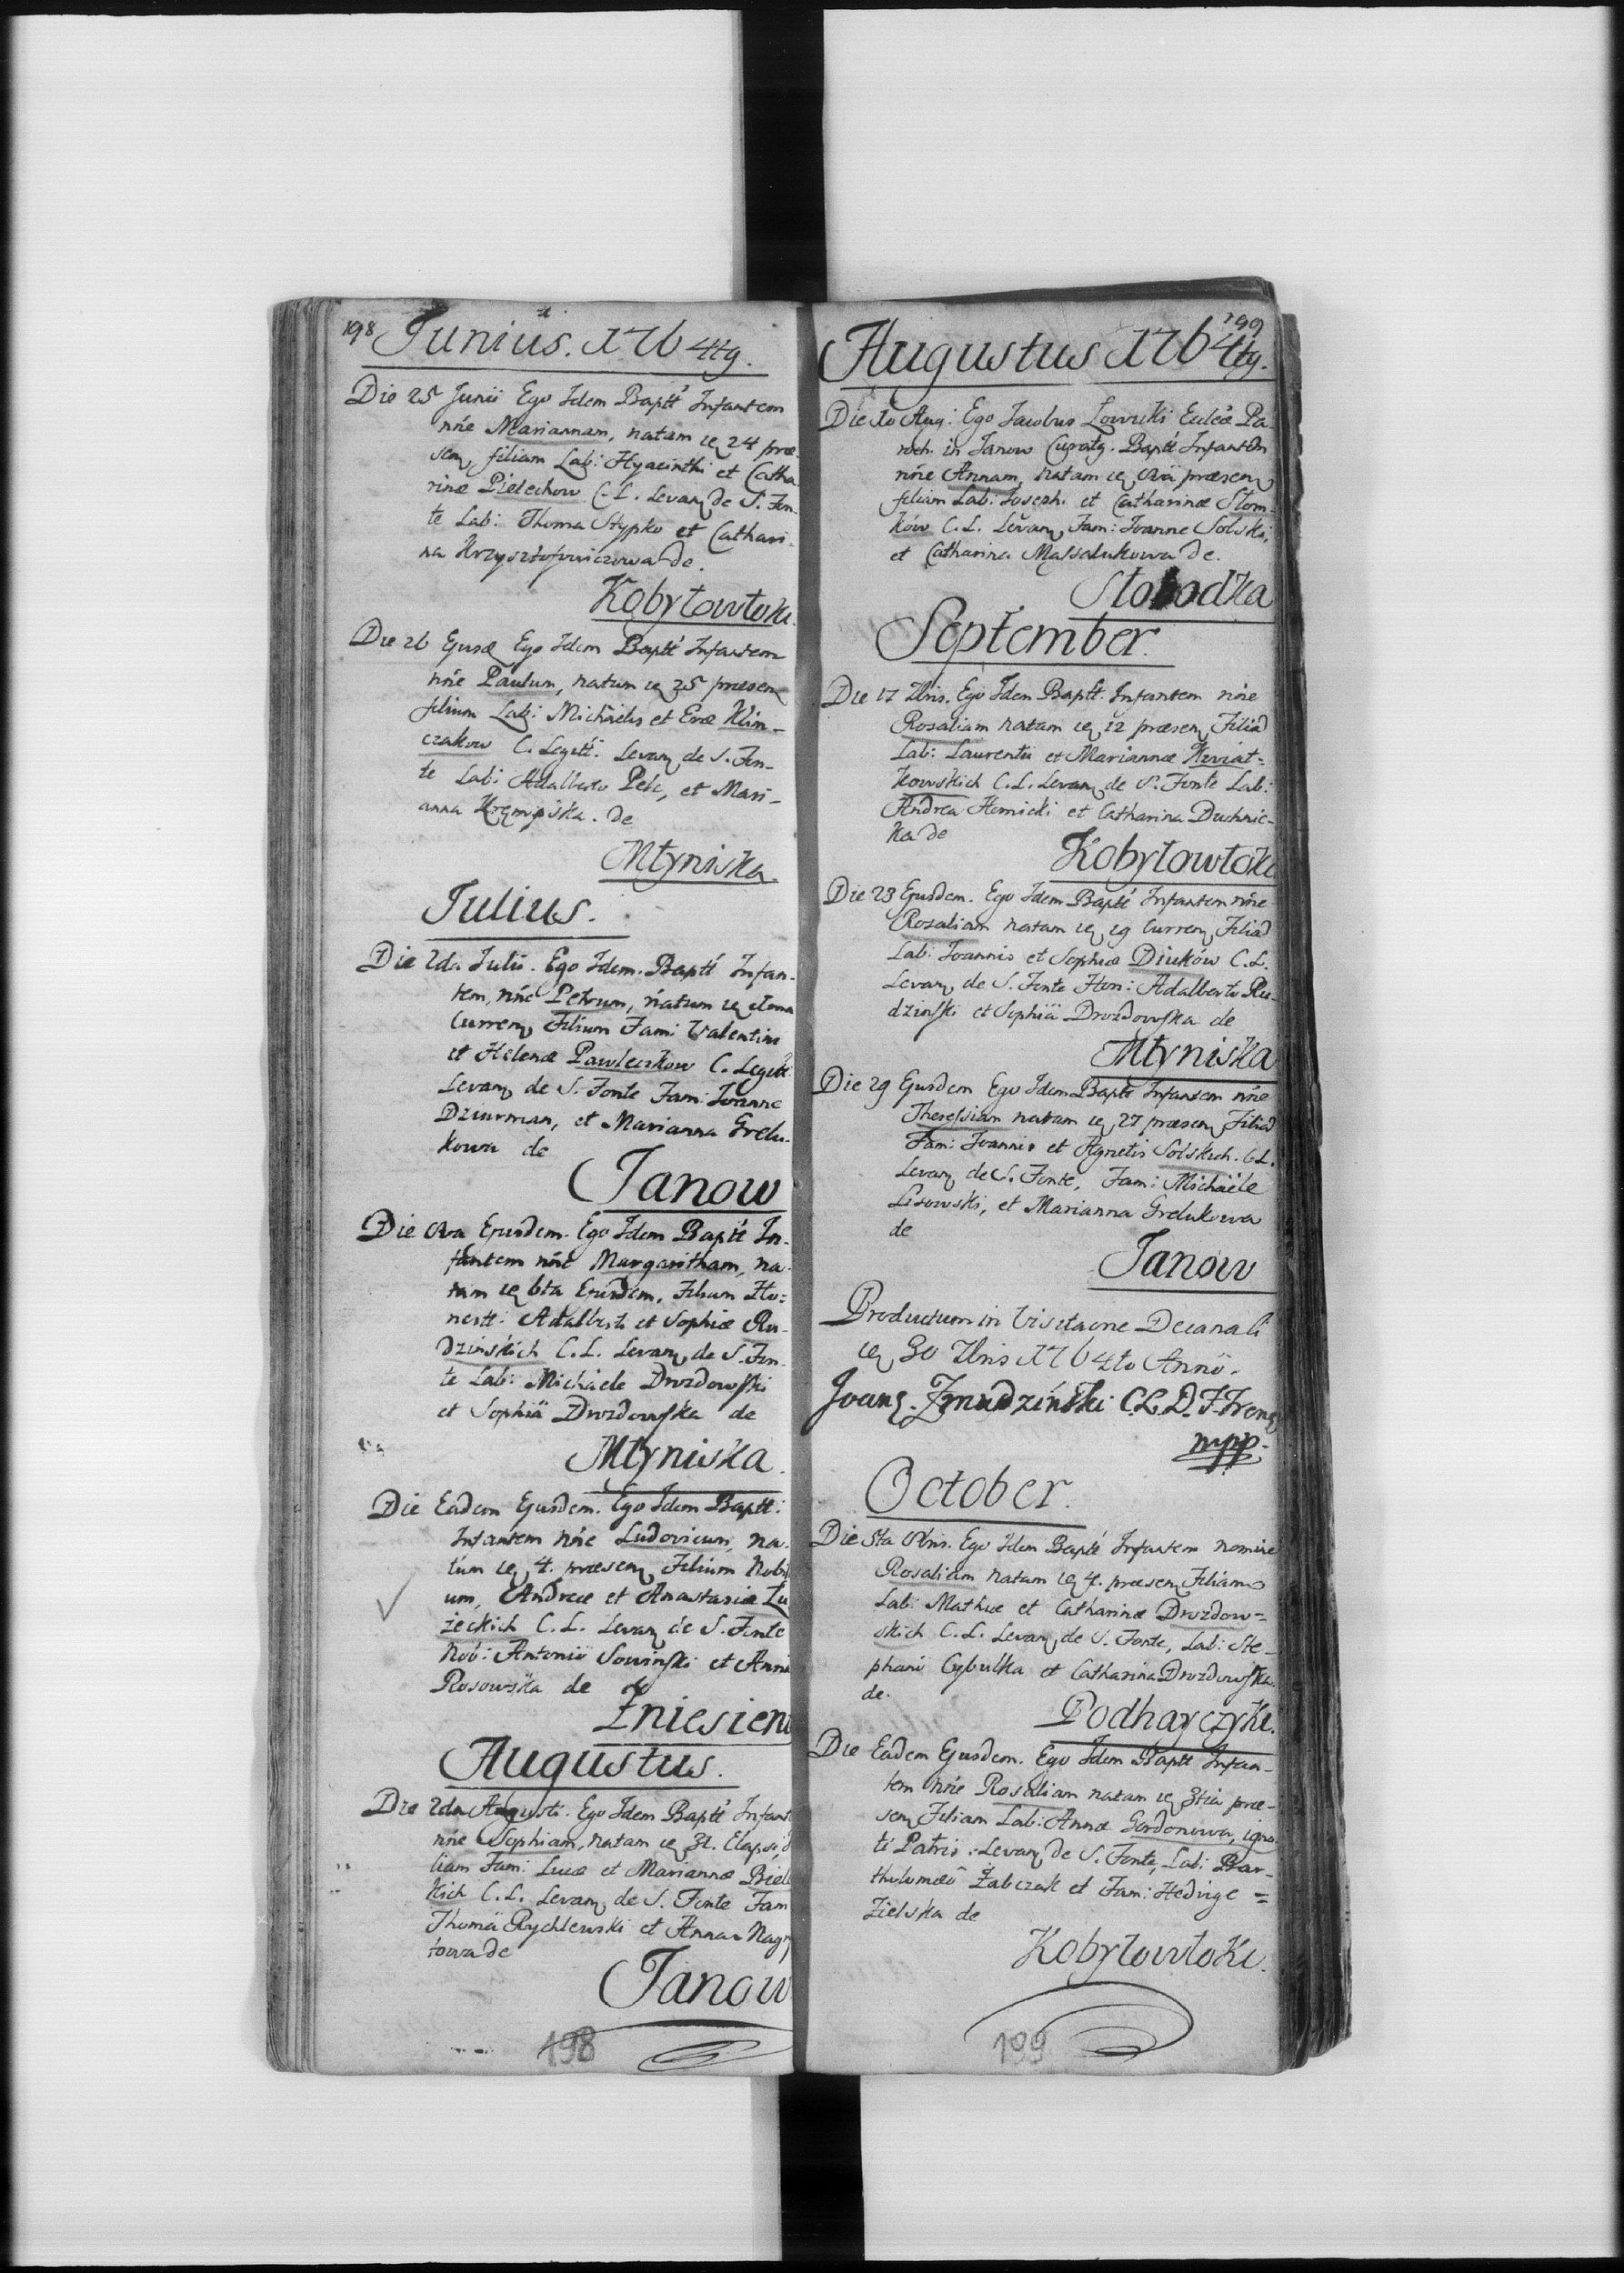 198 Junius. 1764tg.
Die 25 Junii Ego Idem Baptt Infantem
nõe Mariannam, natam 24 præ-
sen filiam Lab: Hyacinthi et Catha-
rinæ Pielechow C. L. Levan de S. Fon-
te Lab: Thoma Stypko et Cathari-
na Krzysztofowiczowa de.
Kobyłowłoki
Die 26 Ejusd Ego Idem Baptt Infantem
nõe Paulum, natum 25 præsen
filium Lab: Michaelis et Evæ Klim-
czakow C. Legitt: Levan de S. Fon-
te Lab: Adalberto Pelc, et Mari-
anna de
Młyniska
Julius.
Die 2da Julii. Ego Idem Baptt Infan-
tem, nõe Petrum, natum
Curren Filium Fam: Valentini
et Helenæ Pawleczkow C. Legitt
Levan de S. Fonte Fam: Joanne
Dziurman, et Marianna Grelu-
kowa de
Janow
Die 8va Ejusdem. Ego Idem Baptt In-
fantem nõe Margaritham, na-
tam 6ta Ejusdem. Filiam Ho-
nestt: Adalberti et Sophiæ Ru-
dzinskich C. L. Levan de S. Fon-
te Lab: Michaele Drozdowski
et Sophiä Drozdowska de
Młyniska
Die Eadem Ejusdem. Ego Idem Baptt:
Infantem nõe Ludovicum, na-
tum 4. præsen Filium Nobi
um, Andreæ et Anastasiæ Zu
żeckich C. L. Levan de S. Fonte
Nob: Antonio Sowinski et Anna
Rosowska de
Zniesieni
Augustus.
Die 2da Augusti. Ego Idem Baptt Infant
nõe Sophiam, natam 31. Elapsi,
liam Fam: Lucæ et Mariannæ Biel
kich C. L. Levan de S. Fonte Fam
Thomä Rychlewski et Anna Nag
towa de
Janow
198
199
Augustus 1764tg.
Die 10 Aug: Ego Jacobus Lowicki Eccleæ Pa-
roch. in Janow Curatg. Baptt Infantem
nõe Annam, natam 8vä præsen
filiam Lab: Joseph. et Catharinæ Słom-
ków C. L. Levan Fam: Joanne Solski,
et Catharina Massalukowa de.
Słobodka
September.
Die 17 7bris. Ego Idem Baptt. Infantem nõe
Rosaliam natam 12 præsen Filiã
Lab: Laurentii et Mariannæ Kwiat-
kowskich C. L. Levan de S. Fonte Lab:
Andrea Hernicki et Catharina Duchnic-
ka de
Kobyłowłoki
Die 23 Ejusdem. Ego Idem Baptt Infantem nõe
Rosaliam natam 19 Curren Filiã
Lab: Joannis et Sophiæ Diuków C. L.
Levan de S. Fonte Hon: Adalberto Ru-
dzinski et Sophiä Drozdowska de
Młyniska
Die 29 Ejusdem Ego Idem Baptt Infantem nõe
Theressiam natam 27 præsen Filiã
Fam: Joannis et Agnetis Solskich. C L.
Levan de S. Fonte, Fam: Michäele
Lisowski, et Marianna Grelukowa
de
Janow
Productum in Visitaone Decanali
30 7bris 1764to Anno.
Joans. Żmudziński C. L. D. F.
mpp.
October.
Die 5ta 8bris. Ego Idem Baptt Infantem nomine
Rosaliam natam 4. præsen Filiam
Lab: Mathiæ et Catharinæ Drozdow-
skich C. L. Levan de S. Fonte, Lab: Ste-
phano Cybulka et Catharina Drozdowska
de.
Podhayczyki.
Die Eadem Ejusdem. Ego Idem Baptt Infan-
tem nõe Rosaliam natam 3tia præ-
sen Filiam Lab: Annæ Gordonowa, igno-
ti Patris. Levan de S. Fonte, Lab: Bar-
tholomeô Żabczak et Fam: Hedvige
Zielska de
Kobyłowłoki.
199